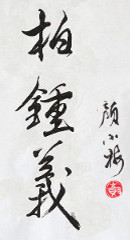 柏鍾義
顏小梅